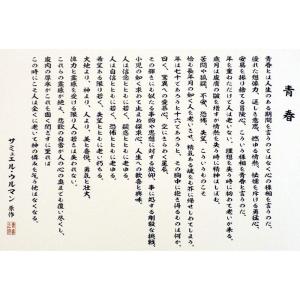 青春
青春とは人生のある期間を言うのではなく心の様相を言うのだ。
優れた想像力、逞しき意志、燃ゆる情熱、怯懦を却ける勇猛心、
安易を振り捨てる冒険心、こういう様相を青春と言うのだ。
年を重ねただけで人は老いない。理想を失う時に初めて老いが来る。
歳月は皮膚の皺を増すが情熱を失う時に精神はしぼむ。
苦悶や狐疑、不安、恐怖、失望、こういうものこそ
恰も長年月の如く人を老いさせ、精気ある魂をも芥に帰せしめてしまう。
年は七十であろうと十六であろうと、その胸中に抱き得るものは何か。
曰く、驚異への愛慕心、空にきらめく星辰、
その輝きにも似たる事物や思想に対する欽仰、事に処する剛毅な挑戦、
小児の如く求めて止まぬ探求心、人生への歓喜と興味。
人は信念と共に若く、疑惑と共に老ゆる。
人は自信と共に若く、恐怖と共に老ゆる。
希望ある限り若く、失望と共に老い朽ちる。
大地より、神より、人より、美と喜悦、勇気と壮大、
偉力と霊感を受ける限り人の若さは失われない。
これらの霊感が絶え、悲歎の白雪が人の心の奥までも覆い尽くし、
皮肉の厚氷がこれを固く閉ざすに至れば
この時にこそ人は全くに老いて神の憐みを乞う他はなくなる。
サミエル・ウルマン 原作